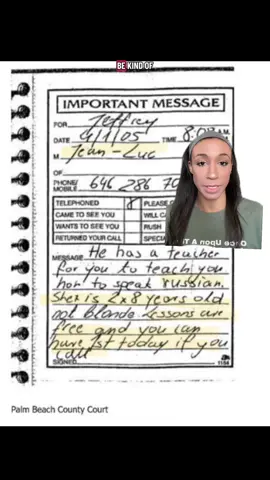 BE KIND OF
IMPORTANT MESSAGE
FOR Jeffrey
DATE 4/1/05 TIME 8:0
M Jean-Luc
OF
PHONE/
MOBILE 646 286 70
TELEPHONED 8 PLEASE
CAME TO SEE YOU WILL CA
WANTS TO SEE YOU RUSH
RETURNED YOUR CALL SPECI
MESSAGE He has a teacher
for you to teach you
how to speak russian.
She is 2x8 years old
not blonde. Lessons are
free and you can
have 1st today if you
call
SIGNED
1184
Once Upon A Ti
Palm Beach County Court